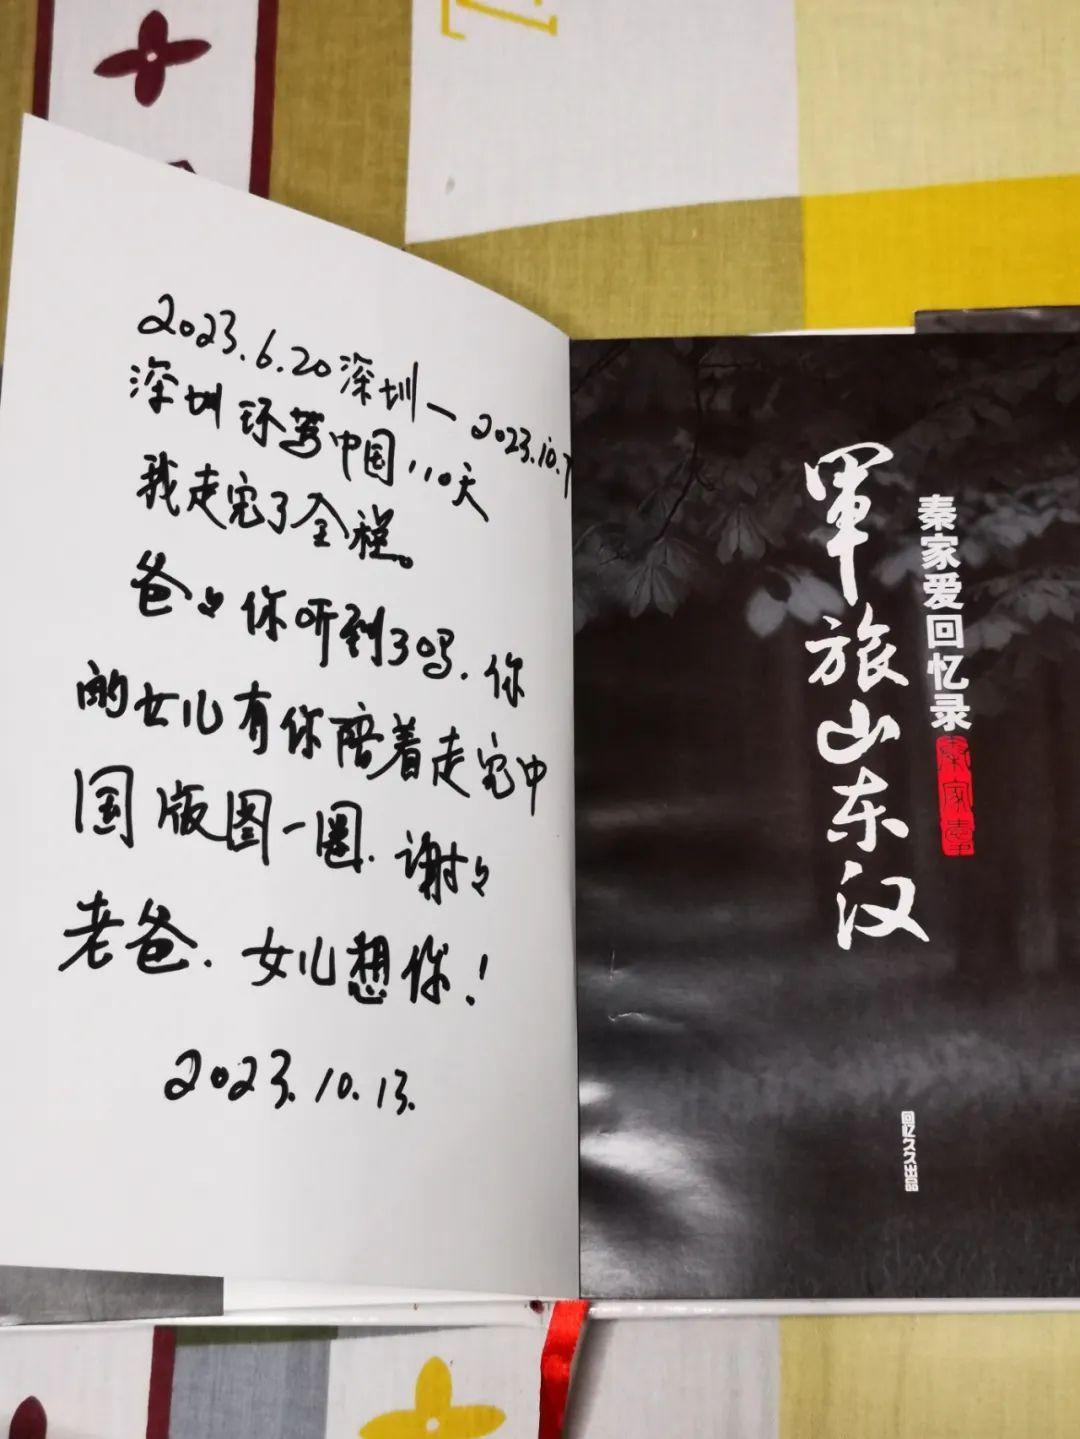 2023.6.20深圳—2023.10.7
深圳环驾中国110天
我走完了全程。
爸爸你听到了吗.你
的女儿有你陪着走完中
国版图一圈.谢谢
老爸.女儿想你！
2023.10.13.
军旅山东汉
秦家爱回忆录
回忆久久出品